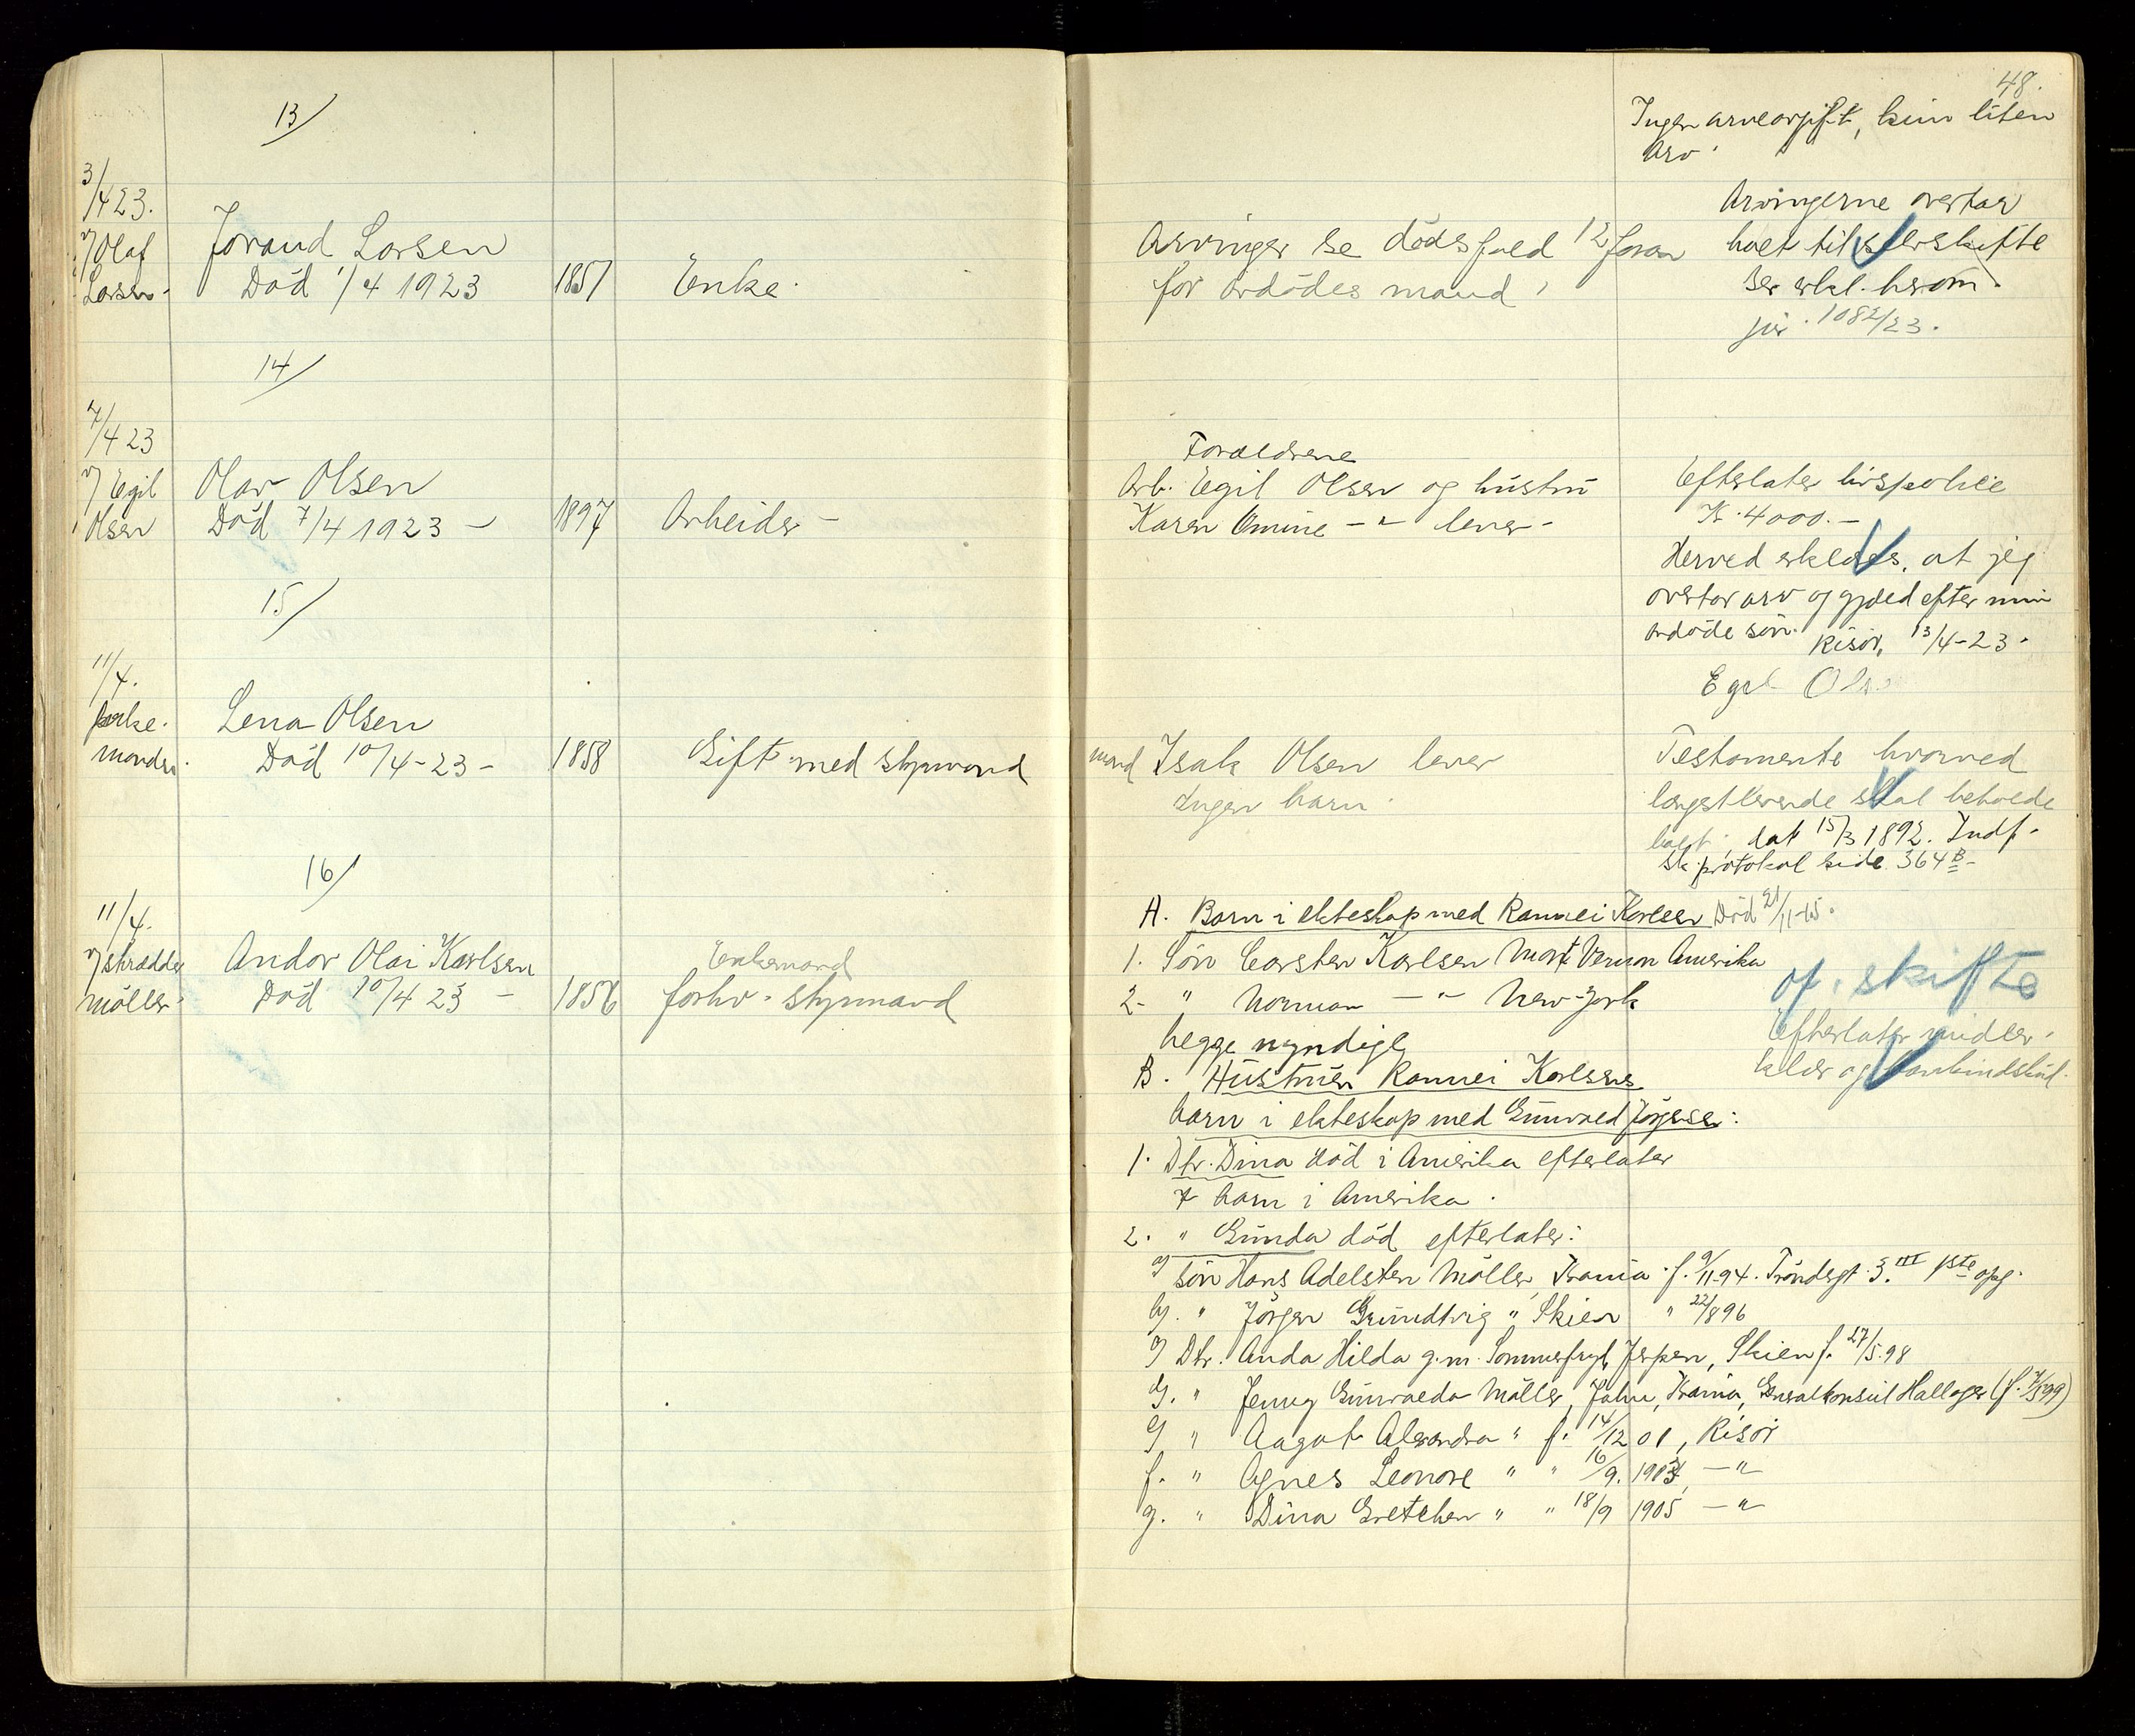 48.
Ingen arveavgift, kun liten
arv.
13/
3/4 23.
v/ Olaf
Larsen.
Jorand Larsen
Död 1/4 1923
1857
Enke.
Arvinger se dödsfald 12 foran
for avdödes mand.
Arvingerne overtar
boet til selvskifte
Se erkl. herom.
jür. 1082/23.
14/
7/4 23
v/ Egil
Olsen
Olav Olsen
Död 7/4 1923 -
1897
Arbeider -
Forældrene
Arb. Egil Olsen og hüstrü
Karen Omine -"- lever -
Efterlater livspolice
Kr. 4000.-
Herved erklæres, at jeg
overtar arv og gjæld efter min
avdöde sön. Risör, 13/4-23.
Egil Olsen
15/
11/4.
kirke-
manden.
Lena Olsen
Död 10/4-23-
1858
Gift med styrmand
mand Isak Olsen lever
Ingen barn.
Testamente hvorved
længstlevende skal beholde
boet, dat 15/3 1892. Indf.
sk. protokol side 364 B-
16/
11/4.
v/ skrædder
Möller.
Andor Olai Karlsen
Död 10/4 23 -
1856
Enkemand
forhv. styrmand
A. Barn i ekteskap med Rannei Karlsen Död 21/11-15.
1. Sön Carsten Karlsen Mont Vernon Amerika
2- " Norman -"- New-York
begge myndige
of. skifte
Efterlater midler.
klær og bankindskud.
B. Hüstrüen Rannei Karlsens
barn i ekteskap med Günvald Jörgensen:
1. Dtr. Dina död i Amerika efterlater
7 barn i Amerika.
2. " Günda död efterlater:
a/ sön Hans Adelsten Möller, Krania f. 9/11-94. Tröndergt. 3. III 1ste opg.
b/. " Jörgen Gründtvig " Skien " 22/8 96
c/ Dtr. Anda Hilda g.m. Sommerfryd Jespen, Skien f. 27/5.98
d/. " Jenny Günvalda Möller, Jahn, Krania, Generalkonsül Hallager (f. 7/5 99)
e/ " Aagot Alexandra " f. 14/12 01, Risör
f. " Agnes Leonore " " 16/9. 1903, -"-
g. " Dina Gretchen " " 18/9 1905 -"-